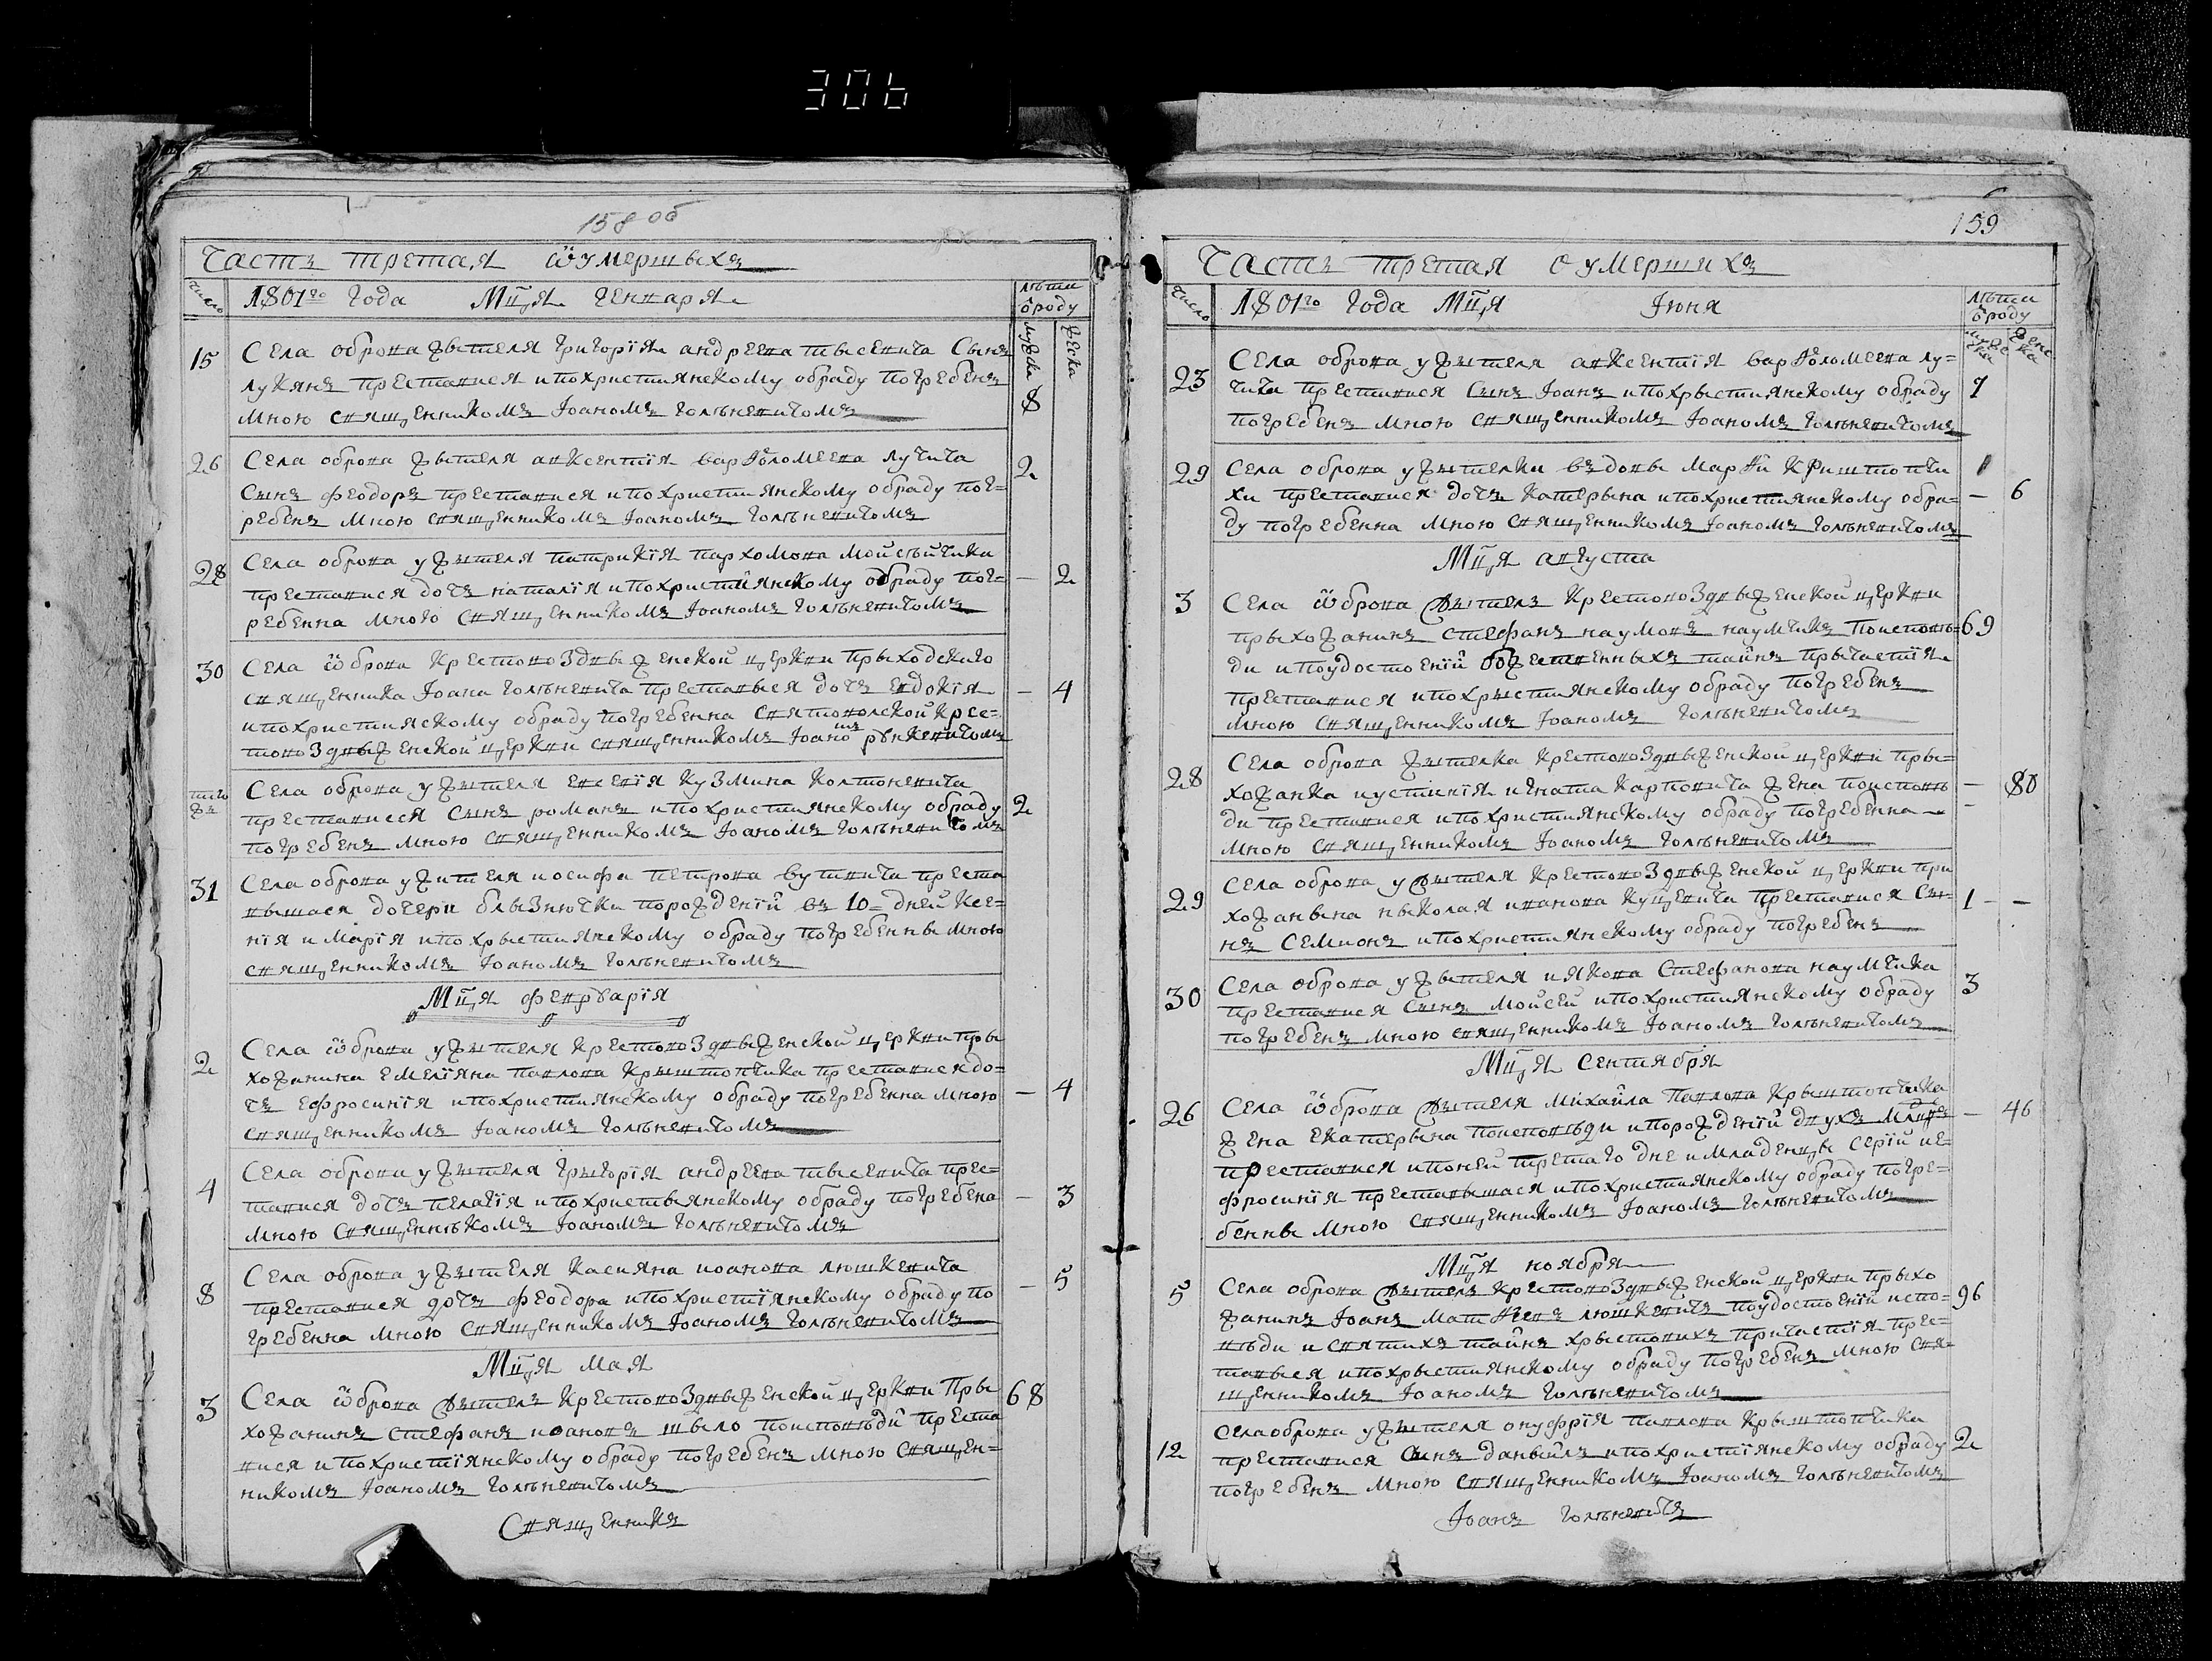 306
158 об
Часть третая ѿ умершыхъ
число
1801го Года Мца Генъаря
лѣти ѿроду
мужска
женска
15
Села оброва жытеля Григорїя андреева тысевича Сынъ
лукянъ преставися и по християнскому обряду погребенъ
мною священникомъ Іоаномъ Голѣневичомъ
8
26
Села оброва жытеля авксентїя варѳоломеева лучича
Сынъ феодоръ преставися и по християнскому обряду пог=
ребенъ мною священникомъ Іоаномъ Голѣневичомъ
2
28
Села оброва ужытеля патрикїя пархомова мойсѣйчика
преставися дочъ наталїя и по християнскому обряду пог=
ребенна мною священникомъ Іоаномъ Голѣневичомъ
— 2
30
Села ѿброва крестовоздвыженской церкви прыходского
священника Іоана Голѣневича преставыся дочъ Евдокїя
и по християнскому обряду погребенна святоволской крес=
товоздвыженской церкви священникомъ Іоаномъ рѣнкевичомъ
— 4
того жъ
Села оброва ужытеля Евсевїя кузмина колтоневича
преставиеся Сынъ романъ и по християнскому обряду
погребенъ мною священникомъ Іоаномъ Голѣневичомъ
2
31
Села оброва ужителя иосифа петрова бутвича преста
вышася дочери блызнючки по рожденїи въ 10= дней ксе=
нїя и марїя и по хрыстиянскому обряду погребенны мною
священникомъ Іоаномъ Голѣневичомъ
Мца февруарїя
2
Села ѿброва ужытеля крестовоздвыженской церкви пры
хожанина Емелїяна павлова крыштопчика преставися до=
чъ Ефросинїя и по християнскому обряду погребенна мною
священникомъ Іоаномъ Голѣневичомъ
— 4
4
Села оброва ужытеля Грыгорїя андреева тысевича прес=
тавися дочъ пелагїя и по христьянскому обряду погребена
мною священнѣкомъ Іоаномъ Голѣневичомъ
— 3
8
Села оброва ужытеля касияна иоанова люшкевича
преставися дочъ феодора и по христїянскому обряду по
гребенна мною священникомъ Іоаномъ Голѣневичомъ
— 5
Мца мая
3
Села ѿброва жытель крестовоздвыженской церкви пры
хожанинъ стефанъ иоановъ шыло по исповѣди преста
вися и по христїянскому обряду погребенъ мною священ=
никомъ Іоаномъ Голѣневичомъ
68
Священникъ
159
Часть третая о умершихъ
число
1801го Года Мца Іюня
лѣти ѿроду
мужс ска
женс ка
23
Села оброва ужытеля авксентїя варѳоломеева лу=
чича преставися Сынъ Іоанъ и по хрыстиянскому обряду
погребенъ мною священникомъ Іоаномъ Голѣневичомъ
7
29
Села оброва ужытелки въдовы марѳи криштопчи
хи преставися дочъ катерына и по християнскому обря=
ду погребенна мною священникомъ Іоаномъ Голѣневичомъ
— 6
Мца августа
3
Села ѿброва жытель крестовоздвыженской церкви
прыхожанинъ стефанъ наумовъ наумчикъ по исповѣ=
ди и по удостоенїи божественныхъ тайнъ прычастїя
преставися и по хрыстиянскому обряду погребенъ
мною священникомъ Іоаномъ Голѣневичомъ
69
28
Села оброва жытелка крестовоздвыженской церкви пры=
хожанка иустинїя игната карповича жена по исповѣ
ди преставися и по християнскому обряду погребенна
мною священникомъ Іоаномъ Голѣневичомъ
— 80
29
Села оброва ужытеля крестовоздвыженской церкви при
хожанына николая иванова куцевича преставися Сы=
нъ Семионъ и по християнскому обряду погребенъ
1 —
30
Села оброва ужытеля иякова Стефанова наумчика
преставися Сынъ мойсей и по християнскому обряду
погребенъ мною священникомъ Іоаномъ Голѣневичомъ
3
Мца Сентября
26
Села ѿброва жытеля михайла павлова крыштопчика
жена Екатерына по исповѣди и по рожденїи двухъ младнъ
преставися и по ней третаго дне и младенцы Серїй и Е=
фросинїя преставышася и по християнскому обряду погре=
бенны мною священникомъ Іоаномъ Голѣневичомъ
— 46
Мца ноября
5
Села оброва жытель крестовоздвыженской церкви прыхо
жанинъ Іоанъ матѳеевъ люшкевичъ по удостоенїи испо=
вѣди и святихъ тайнъ хрыстовихъ причастїя прес=
тавыся и по хрыстиянскому обряду погребенъ мною свя=
щенникомъ Іоаномъ Голѣневичомъ
96
12
Села оброва ужытеля онуфрїя павлова крыштопчика
преставися Синъ даныйлъ и по христїянскому обряду
погребенъ мною священникомъ Іоаномъ Голѣневичомъ
2
Іоанъ Голѣневичъ